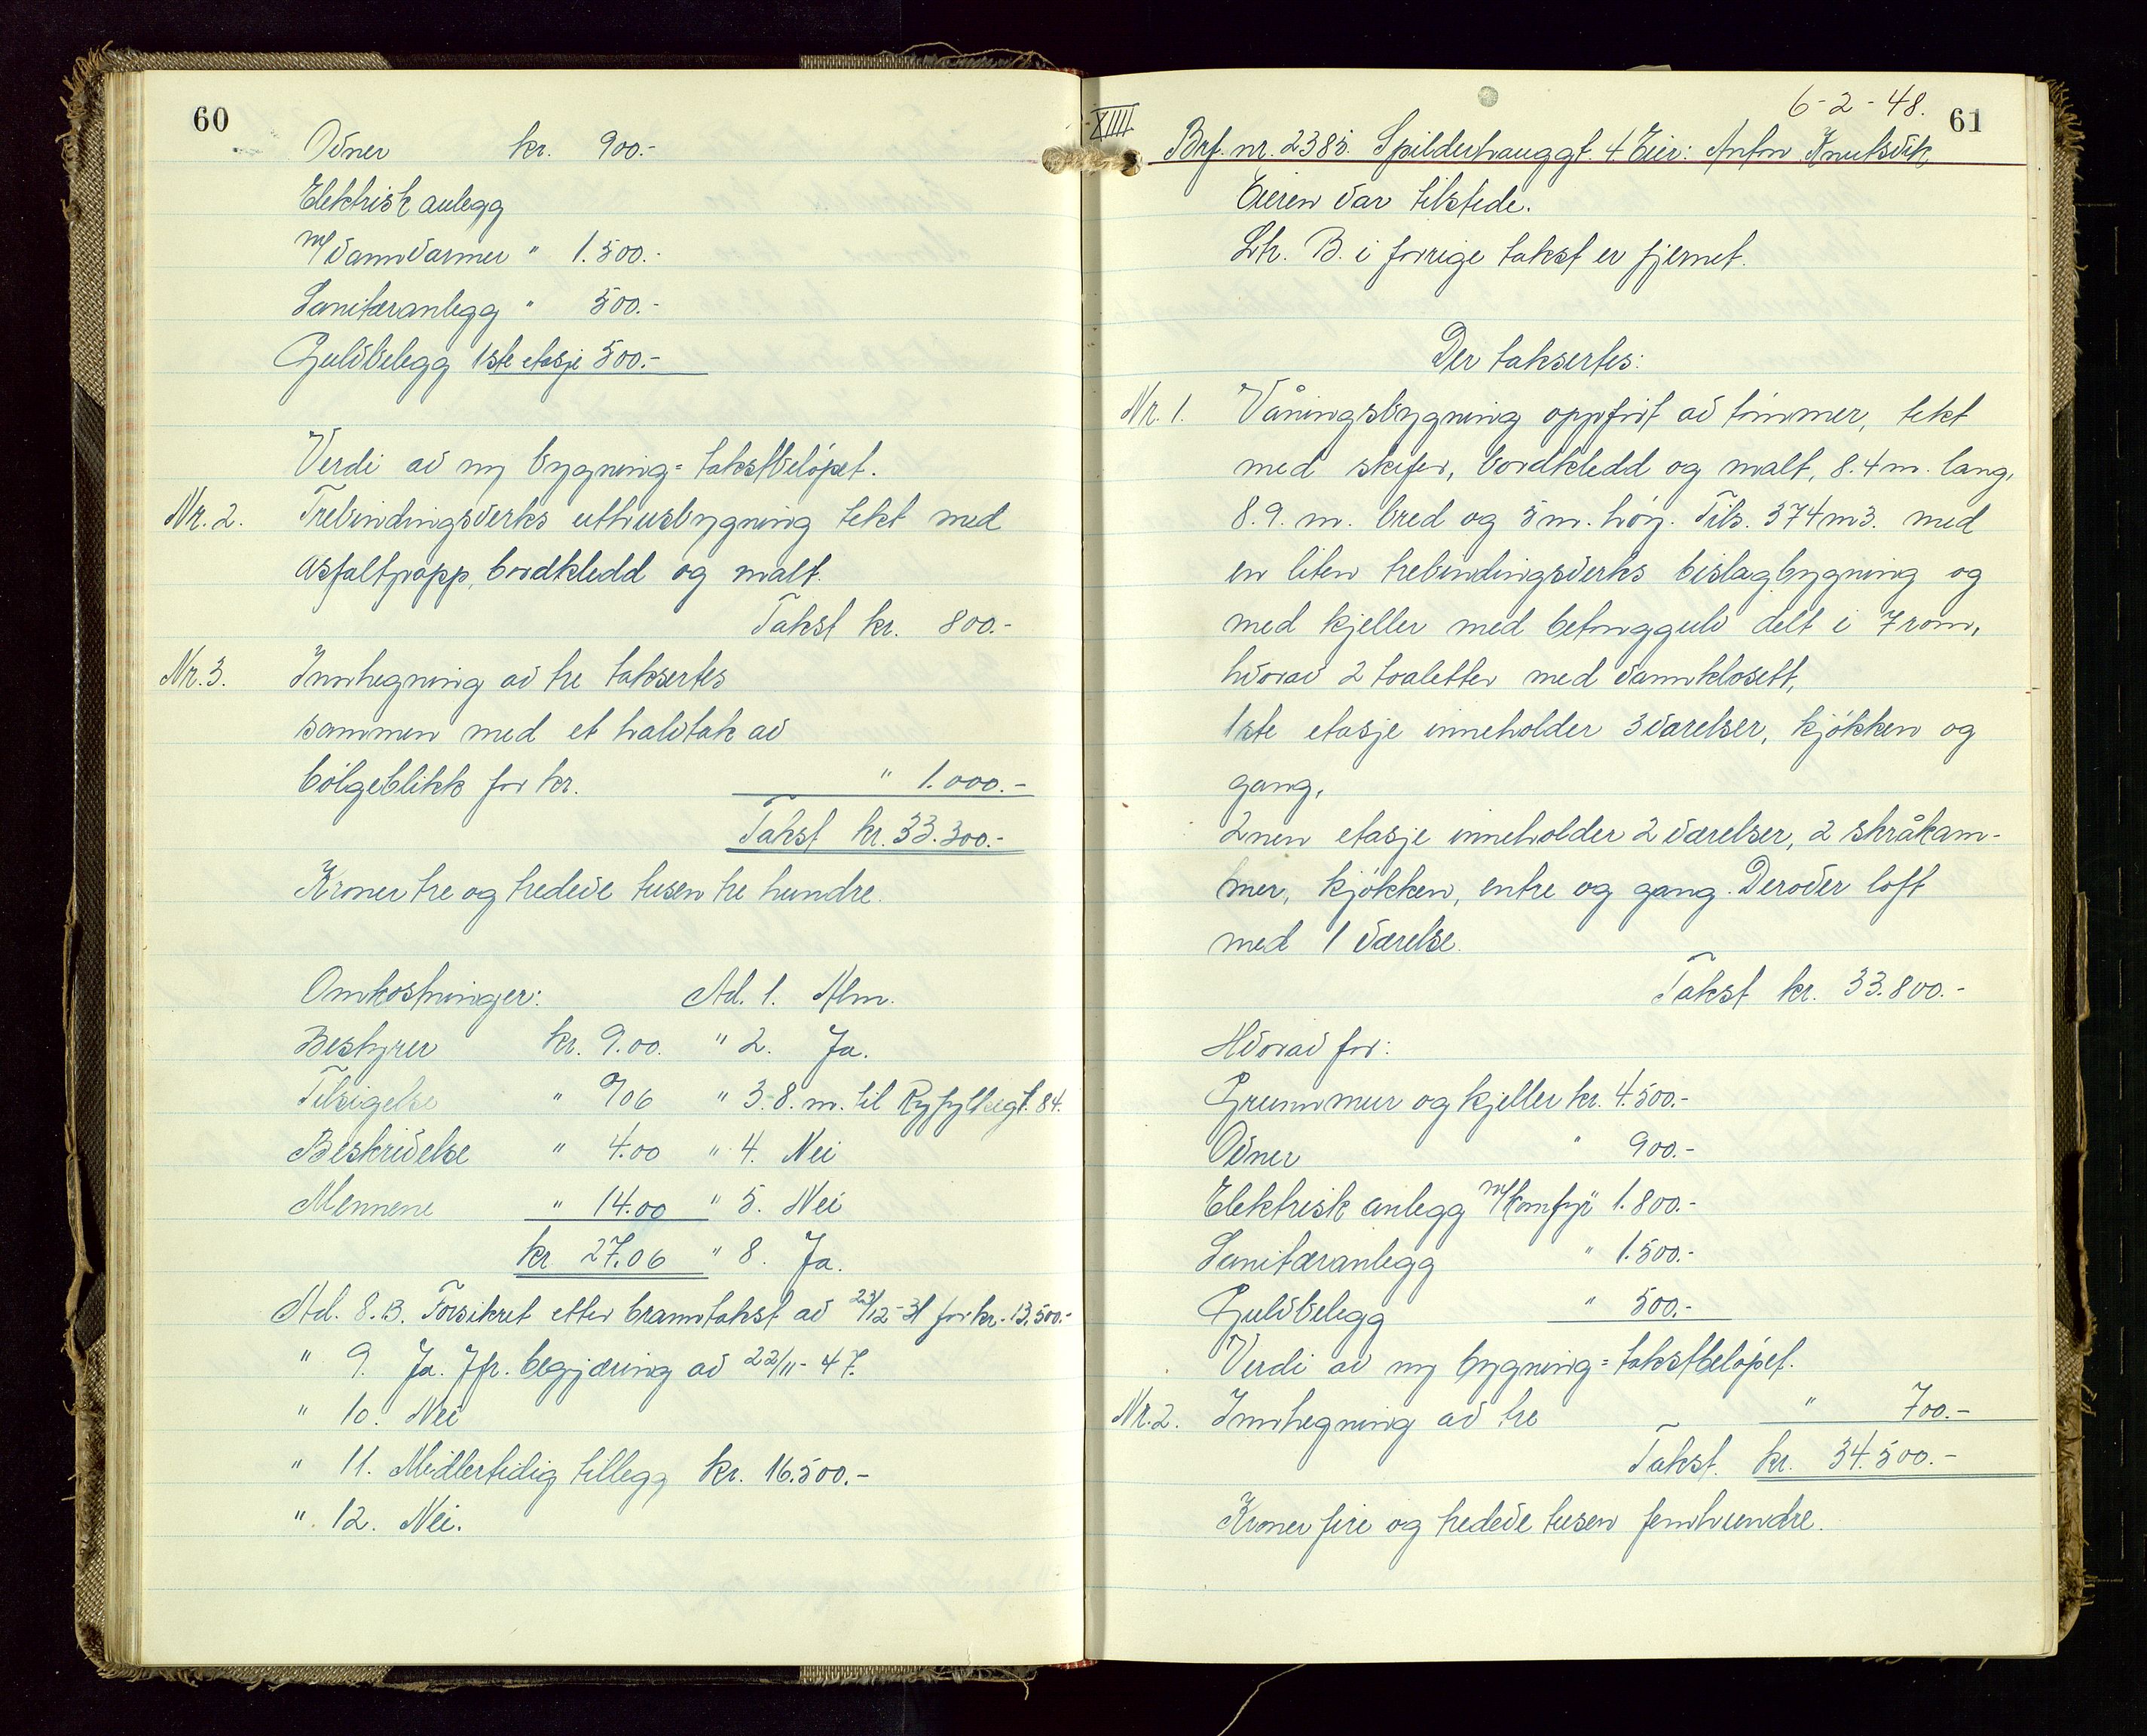 60
Ovner kr. 900.-
Elektrisk anlegg
m/vannvarmer " 1.500.-
Sanitæranlegg " 500.-
Gulvbelegg 1ste etasje 500.-
Verdi av ny bygning = takstbeløpet.
Nr. 2. Trebindingsverks uthusbygning tekt med
asfaltpapp, bordkledd og malt.
Takst kr. 800.-
Nr. 3. Innhegning av tre taksertes
sammen med et halvtak av
bølgeblikk for kr. " 1.000.-
Takst kr. 33.300.-
Kroner tre og tredeve tusen tre hundre.
Omkostninger: Ad. 1. Alm.
Bestyrer kr. 9.00. " 2. Ja.
Tilsigelse " 0/06 " 3. 8. m. til Ryfylkegt. 84.
Beskrivelse " 4.00 " 4. Nei
Mennene " 14.00 " 5. Nei
kr 27.06 " 8. Ja.
Ad. 8. B. Forsikret etter branntakst av 23/12-31 for kr. 13.500.-
" 9. Ja. Jfr. begjæring av 22/11-47.
" 10. Nei
" 11. Midlertidig tillegg kr. 16.500.-
" 12. Nei.
6-2-48. 61
XIIII
Brf. nr. 2385. Spilderhauggt. 4 Eier: Anton Knutsvik
Eieren var tilstede.
Litr. B. i forrige takst er fjernet.
Der taksertes:
Nr. 1. Våningsbygning oppført av tømmer, tekt
med skifer, bordkledd og malt, 8.4 m. lang,
8.9. m. bred og 5 m. høy. Tils. 374 m3. med
en liten trebindingsverks bislagbygning og
med kjeller med betonggulv delt i 7 rom,
hvorav 2 toaletter med vannklosett,
1ste etasje inneholder 3 værelser, kjøkken og
gang,
2nen etasje inneholder 2 værelser, 2 skråkam-
mer, kjøkken, entre og gang. Derover loft
med 1 værelse.
Takst kr. 33.800.-
Hvorav for:
Grunnmur og kjeller kr. 4.500.-
Ovner " 900.-
Elektrisk anlegg m/komfyr " 1.800.-
Sanitæranlegg " 1.500.-
Gulvbelegg " 500.-
Verdi av ny bygning = takstbeløpet.
Nr. 2. Innhegning av tre " 700.-
Takst. kr. 34.500.-
Kroner fire og tredeve tusen femhundre.